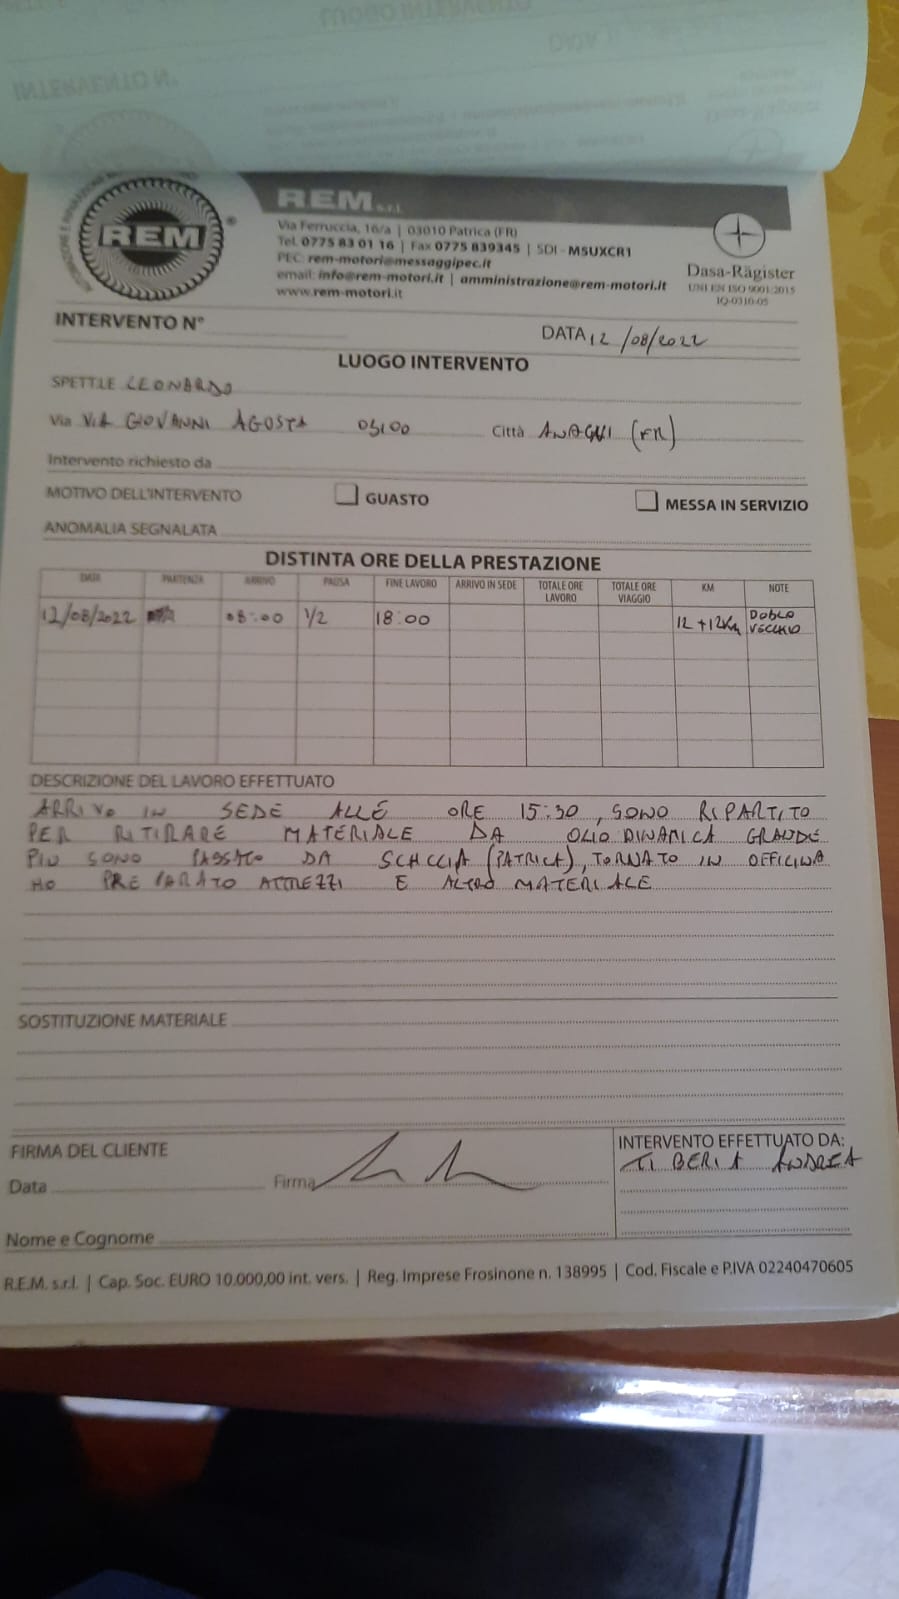 REM s.r.l.
REM ®
Via Ferruccia, 16/a | 03010 Patrica (FR)
Tel. 0775 83 01 16 | Fax 0775 839345 | SDI - M5UXCR1
PEC: rem-motori@messaggipec.it
email: info@rem-motori.it | amministrazione@rem-motori.it
www.rem-motori.it
Dasa-Rägister
UNI EN ISO 9001:2015
IQ-0316-05
INTERVENTO N°
DATA 12/08/2022
LUOGO INTERVENTO
SPETT.LE LEONARDO
Via VIA GIOVANNI AGOSTA 03100 Città ANAGNI (FR)
Intervento richiesto da
MOTIVO DELL'INTERVENTO GUASTO MESSA IN SERVIZIO
ANOMALIA SEGNALATA
DISTINTA ORE DELLA PRESTAZIONE
DATA PARTENZA ARRIVO PAUSA FINE LAVORO ARRIVO IN SEDE TOTALE ORE LAVORO TOTALE ORE VIAGGIO KM NOTE
12/08/2022 08:00 1/2 18:00 12+12Km DOBLO VECCHIO
DESCRIZIONE DEL LAVORO EFFETTUATO
ARRIVO IN SEDE ALLE ORE 15:30, SONO RIPARTITO
PER RITIRARE MATERIALE DA OLIO DINAMICA GRANDE
PIU SONO PASSATO DA SCACCIA (PATRICA), TORNATO IN OFFICINA
HO PREPARATO ATTREZZI E ALTRO MATERIALE
SOSTITUZIONE MATERIALE
FIRMA DEL CLIENTE
Data Firma
Nome e Cognome
INTERVENTO EFFETTUATO DA:
TIBERIA ANDREA
R.E.M. s.r.l. | Cap. Soc. EURO 10.000,00 int. vers. | Reg. Imprese Frosinone n. 138995 | Cod. Fiscale e P.IVA 02240470605